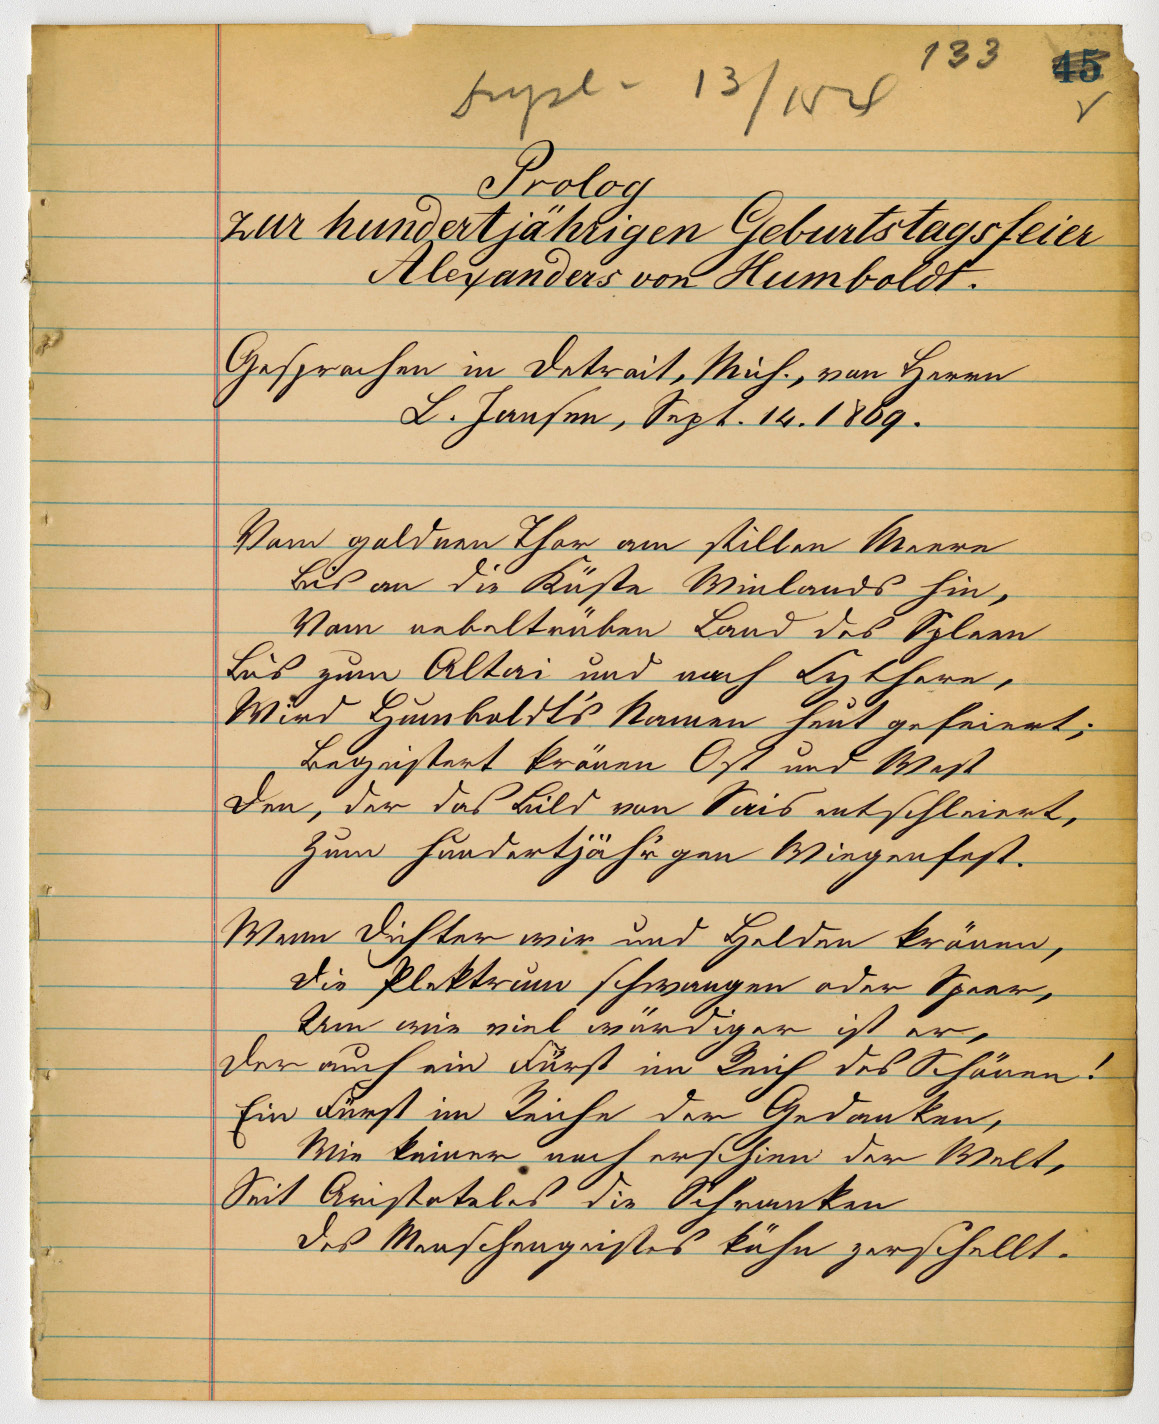 133
45
Dupl - 13/
Prolog
zur hundertjährigen Geburtstagsfeier
Alexanders von Humboldt.
Gesprochen in Detroit, Mich., von Herrn
L. Jansen, Sept. 14. 1869.
Vom goldnen Thor am stillen Meere
Bis an die Küste Winlands hin,
Vom nebeltrüben Land des Spleen
Bis zum Altai und nach Cythere,
Wird Humboldt's Namen heut gefeiert;
Begeistert krönen Ost und West
Den, der das Bild von Sais entschleiert,
Zum hundertjähr'gen Wiegenfest.
Wenn Dichter wir und Helden krönen,
Die Plektrum schwangen oder Speer,
Um wie viel würdiger ist er,
Der auch ein Fürst im Reich des Schönen!
Ein Fürst im Reiche der Gedanken,
Wie keiner noch erschien der Welt,
Seit Aristoteles die Schranken
Des Menschengeistes kühn zerschellt.